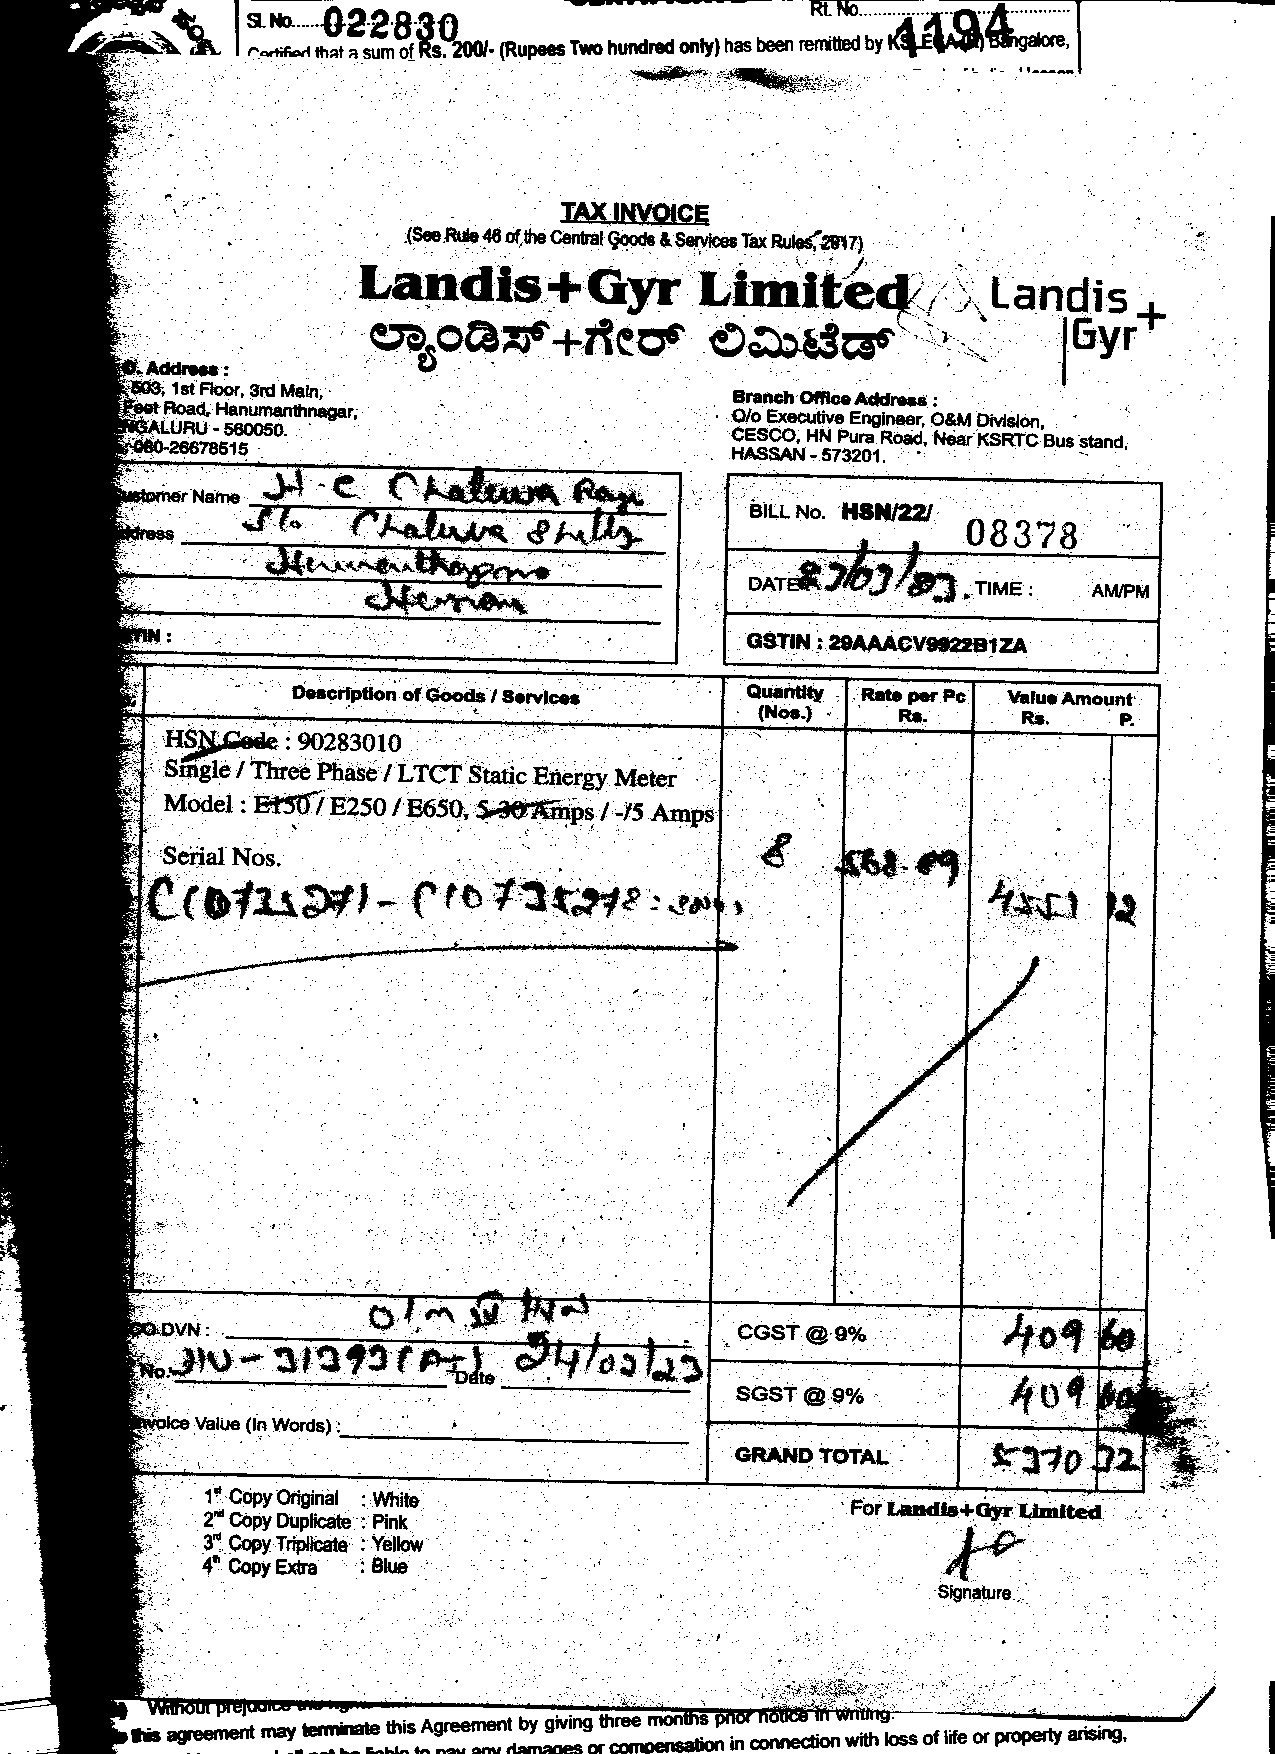 Sl. No...... 022830
Rt. No.................. 1194
Certified that a sum of Rs. 200/- (Rupees Two hundred only) has been remitted by Bangalore,
TAX INVOICE
(See Rule 46 of the Central Goods & Services Tax Rules, 2017)
Landis+Gyr Limited
Landis
Gyr+
ಲ್ಯಾಂಡಿಸ್+ಗೇರ್ ಲಿಮಿಟೆಡ್
Address :
503, 1st Floor, 3rd Main,
Feet Road, Hanumanthnagar,
NGALURU - 560050.
080-26678515
Branch Office Address :
O/o Executive Engineer, O&M Division,
CESCO, HN Pura Road, Near KSRTC Bus stand,
HASSAN - 573201.
ustomer Name H.C Chaluva Raju
ddress S/o Chaluva Shetty
Hassan
TIN :
BILL No. HSN/22/ 08378
DATE TIME : AM/PM
GSTIN : 29AAACV9922B1ZA
Description of Goods / Services
Quantity (Nos.)
Rate per Pc Rs.
Value Amount Rs. P.
HSN Code : 90283010
Single / Three Phase / LTCT Static Energy Meter
Model : E150 / E250 / E650, 5-30 Amps / -/5 Amps
Serial Nos.
8 568.89 4551 12
DVN :
No. Date 24/03/23
CGST @ 9% 409 60
SGST @ 9% 409 60
nvoice Value (In Words) :
GRAND TOTAL 5370 32
1st Copy Original : White
2nd Copy Duplicate : Pink
3rd Copy Triplicate : Yellow
4th Copy Extra : Blue
For Landis+Gyr Limited
Signature
Without prejudice
this agreement may terminate this Agreement by giving three months prior notice in writing.
to pay any damages or compensation in connection with loss of life or property arising,